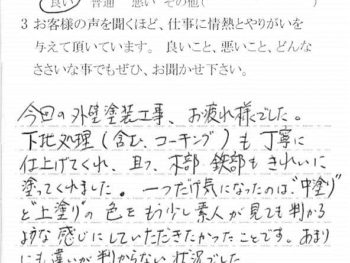 良い 普通 悪い その他(　　　)
3 お客様の声を聞くほど、仕事に情熱とやりがいを
与えて頂いています。 良いこと、悪いこと、どんな
ささいな事でもぜひ、お聞かせ下さい。
今回の外壁塗装工事、お疲れ様でした。
下地処理(含む、コーキング)も丁寧に
仕上げてくれ、且つ、木部 鉄部もきれいに
塗ってくれました。一つだけ気になったのは“中塗り”
と“上塗り”の色をもう少し素人が見ても判かる
ような感じにしていただきたかったことです。あまり
にも違いが判からない状況でした